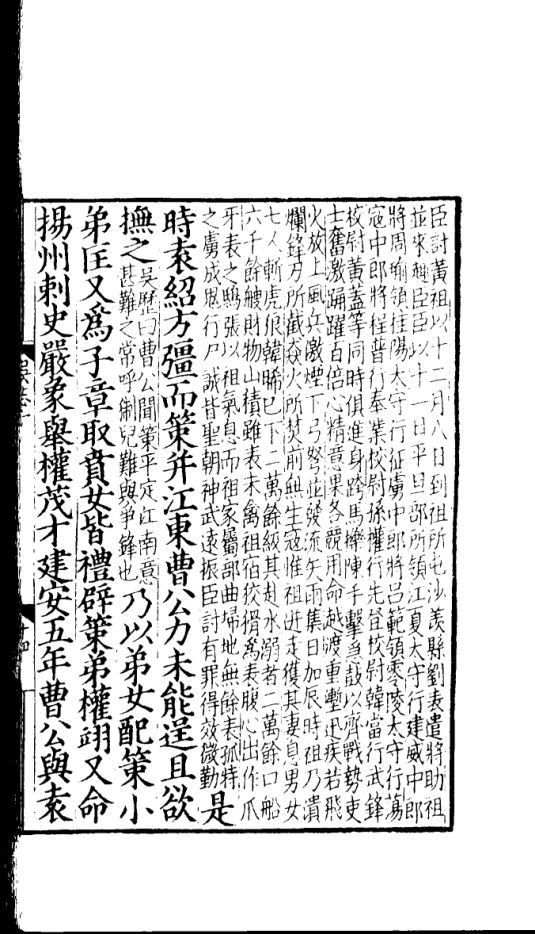 臣討黃祖以十二月八日到祖所屯沙羨縣劉表遣將助祖
並來趣臣臣以十一日平旦部所領江夏太守行建威中郎
將周瑜領桂陽太守行征虜中郎將呂範領零陵太守行蕩
寇中郎將程普行奉業校尉孫權行先登校尉韓當行武鋒
校尉黃蓋等同時俱進身跨馬擽陳手擊急鼓以齊戰勢吏
士奮激踊躍百倍心精意果各競用命越渡重塹迅疾若飛
火放上風兵激煙下弓弩並發流矢雨集日加辰時祖乃潰
爛鋒刃所截猋火所焚前無生寇惟祖迸走獲其妻息男女
七人斬虎狼韓晞已下二萬餘級其赴水溺者二萬餘口船
六千餘艘財物山積雖表未禽祖宿狡猾爲表腹心出作爪
牙表之鴟張以祖氣息而祖家屬部曲掃地無餘表孤特
之虜成鬼行尸誠皆聖朝神武遠振臣討有罪得效微勤是
時袁紹方彊而策并江東曹公力未能逞且欲
撫之吳歷曰曹公聞策平定江南意甚難之常呼猘兒難與爭鋒也乃以弟女配策小
弟匡又爲子章取賁女皆禮辟策弟權翊又命
揚州刺史嚴象舉權茂才建安五年曹公與袁